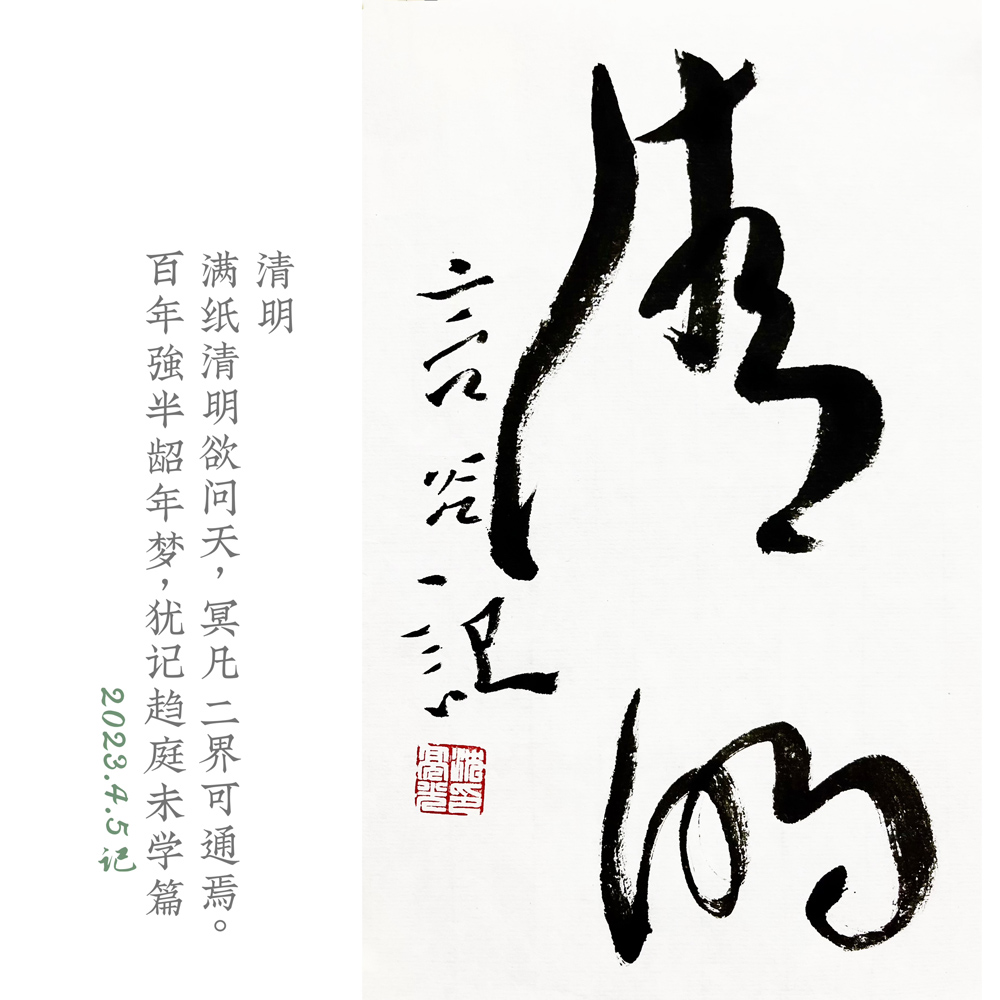 清明
言谷記
清明
满纸清明欲问天，冥凡二界可通焉。
百年強半龆年梦，犹记趋庭未学篇
2023.4.5记